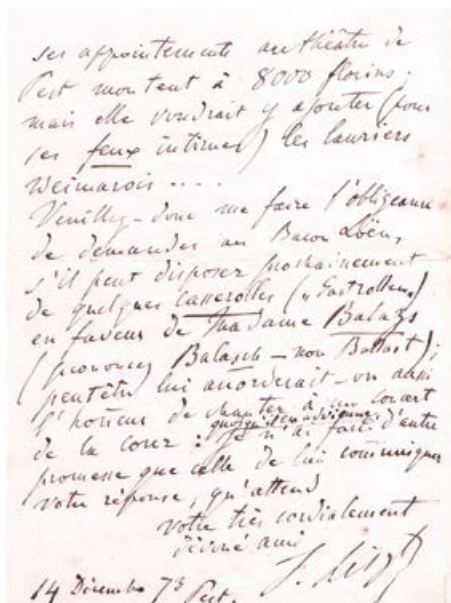 ses appointements au théâtre de
Pest montent à 8000 florins;
mais elle voudrait y ajouter (pour
ses feux intimes) les lauriers
Weimarois ....
Veuillez-donc me faire l'obligeance
de demander au Baron Loën,
s'il peut disposer prochainement
de quelques casserolles („Gastrollen")
en faveur de Madame Balazs
(prononcez Balasch – non Ballast);
peutêtre lui accorderait-on aussi
l'honneur de chanter à un concert
de la cour: quoiqu'il en advienne, je n'ai fait d'autre
promesse que celle de lui communiquer
votre réponse, qu'attend
votre très cordialement
dévoué ami
F. Liszt
14 Décembre 73 Pest.